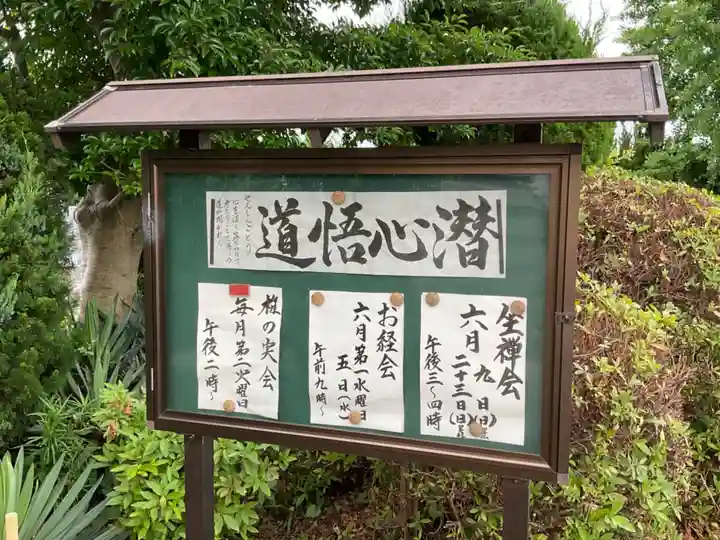 潜心悟道
せんしんごどう
坐禅会
六月 九日(日)
二十三日(日)
午後三〜四時
お経会
六月第一水曜日
五日(水)
午前九時〜
梅の実会
毎月第二火曜日
午後一時〜